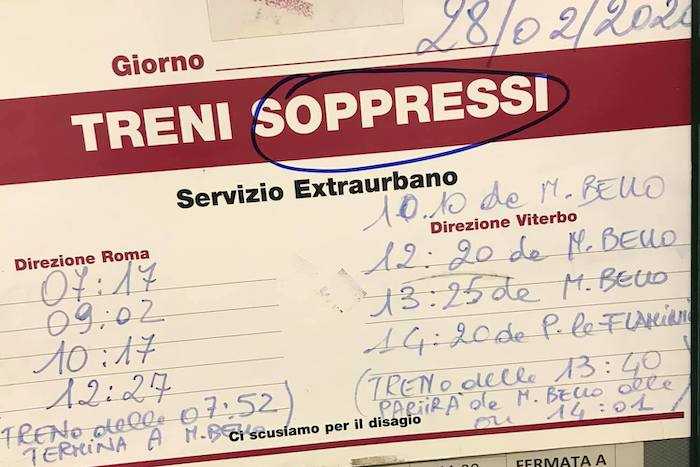 Giorno 28/02/2020
TRENI SOPPRESSI
Servizio Extraurbano
Direzione Roma
07:17
09:02
10:17
12:27
(TRENO delle 07:52)
TERMINA A M. BELLO
10.10 da M. BELLO
Direzione Viterbo
12:20 da M. BELLO
13:25 da M. BELLO
14:20 da P.le FLAMINIO
(TRENO delle 13:40
PARTIRÀ da M. BELLO alle
ore 14:01)
Ci scusiamo per il disagio
FERMATA A